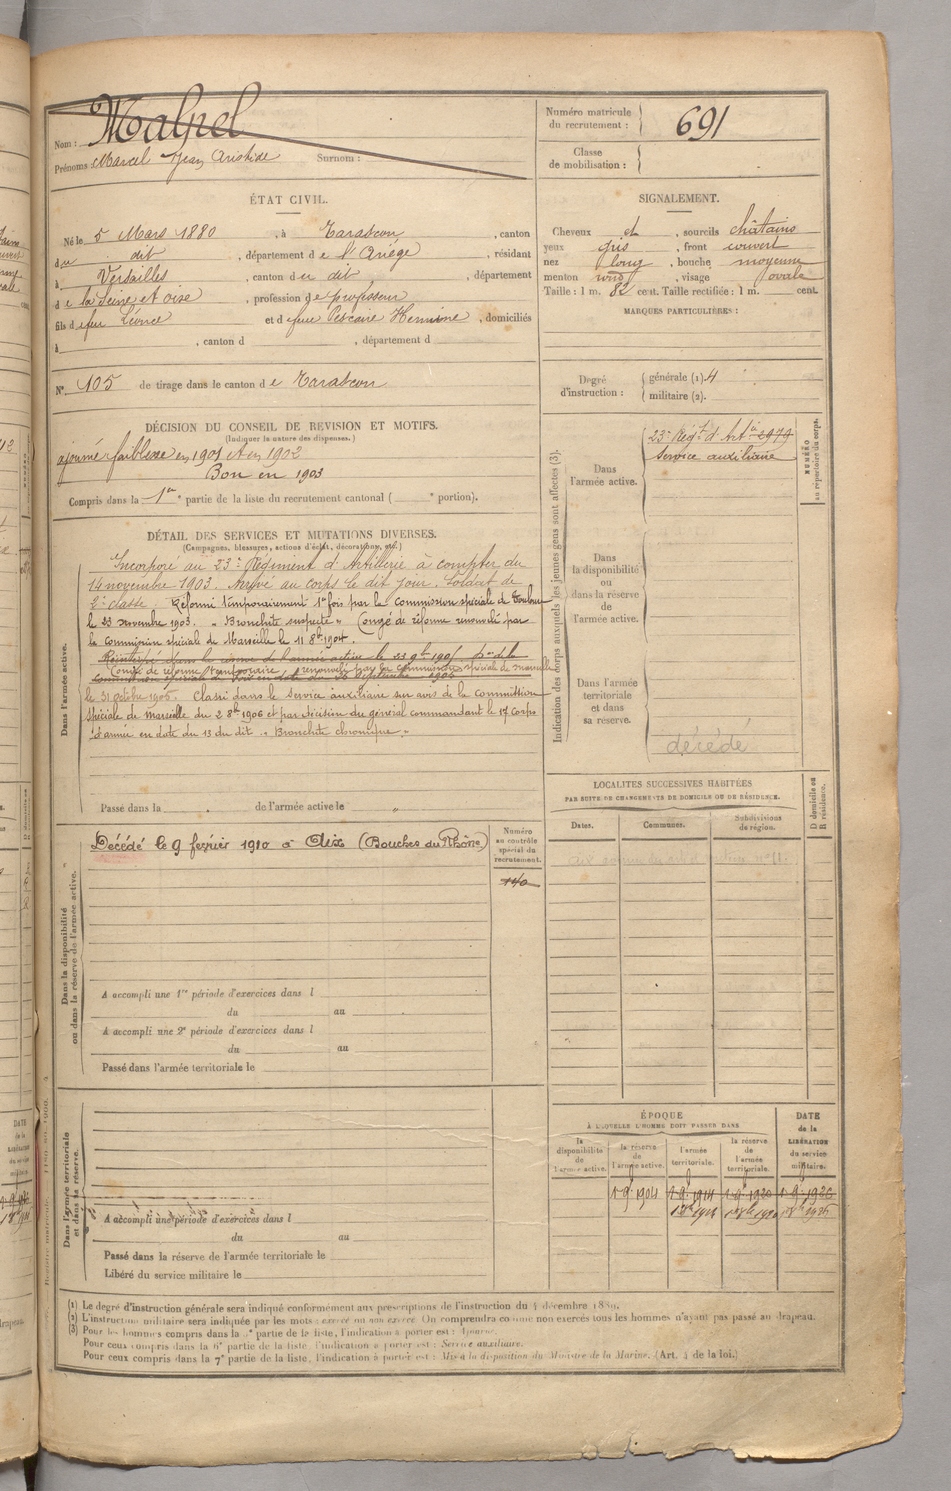 Nom : Malpel
Prénoms : Marcel Jean Aristide Surnom :
Numéro matricule du recrutement : 691
Classe de mobilisation :
ÉTAT CIVIL.
Né le 5 Mars 1880, à Tarascon, canton
du dit, département de l'Ariége, résidant
à Versailles, canton du dit, département
de la Seine et Oise, profession de professeur
fils de feu Léonce et de feue Pescaire Hermine, domiciliés
à , canton d , département d
N° 105 de tirage dans le canton de Tarascon
DÉCISION DU CONSEIL DE REVISION ET MOTIFS.
(Indiquer la nature des dispenses.)
ajourné faiblesse en 1901 et en 1902
Bon en 1903
Compris dans la 1re partie de la liste du recrutement cantonal ( e portion).
DÉTAIL DES SERVICES ET MUTATIONS DIVERSES.
(Campagnes, blessures, actions d'éclat, décorations, etc.)
Dans l'armée active.
Incorporé au 23e Régiment d'Artillerie à compter du
14 novembre 1903. Arrivé au corps le dit jour. Soldat de
2e classe. Réformé temporairement 1re fois par la commission spéciale de Toulouse
le 23 novembre 1903. " Bronchite suspecte " Congé de réforme renouvelé par
la commission spéciale de Marseille le 11 8bre 1904.
Congé de réforme temporaire renouvelé par la commission spéciale de Marseille
le 31 octobre 1905. Classé dans le service auxiliaire sur avis de la commission
spéciale de marseille du 2 8bre 1906 et par décision du général commandant le 17e corps
d'armée en date du 13 du dit. " Bronchite chronique. "
Passé dans la " de l'armée active le "
Dans la disponibilité ou dans la réserve de l'armée active.
Décédé le 9 fevrier 1910 à Aix (Bouches du Rhône)
Numéro au contrôle spécial du recrutement.
A accompli une 1re période d'exercices dans l
du au
A accompli une 2e période d'exercices dans l
du au
Passé dans l'armée territoriale le
Dans l'armée territoriale et dans sa réserve.
A accompli une période d'exercices dans l
du au
Passé dans la réserve de l'armée territoriale le
Libéré du service militaire le
SIGNALEMENT.
Cheveux et, sourcils châtains
yeux gris, front couvert
nez long, bouche moyenne
menton rond, visage ovale
Taille : 1 m. 82 cent. Taille rectifiée : 1 m. cent.
MARQUES PARTICULIÈRES :
Degré d'instruction : générale (1). 4
militaire (2).
Indication des corps auxquels les jeunes gens sont affectés (3).
NUMÉRO au répertoire du corps.
Dans l'armée active.
23e Régt d'Artie 2979
Service auxiliaire
Dans la disponibilité ou dans la réserve de l'armée active.
Dans l'armée territoriale et dans sa réserve.
décédé
LOCALITÉS SUCCESSIVES HABITÉES
PAR SUITE DE CHANGEMENTS DE DOMICILE OU DE RÉSIDENCE.
Dates. Communes. Subdivisions de région.
D domicile ou R résidence.
ÉPOQUE
À LAQUELLE L'HOMME DOIT PASSER DANS
la disponibilité de l'armée active.
la réserve de l'armée active.
l'armée territoriale.
la réserve de l'armée territoriale.
DATE de la LIBÉRATION du service militaire.
(1) Le degré d'instruction générale sera indiqué conformément aux prescriptions de l'instruction du 4 décembre 1889.
(2) L'instruction militaire sera indiquée par les mots : exercé ou non exercé. On comprendra comme non exercés tous les hommes n'ayant pas passé au drapeau.
(3) Pour les hommes compris dans la 5e partie de la liste, l'indication à porter est : Ajourné.
Pour ceux compris dans la 6e partie de la liste, l'indication à porter est : Service auxiliaire.
Pour ceux compris dans la 7e partie de la liste, l'indication à porter est : Mis à la disposition du Ministre de la Marine. (Art. 4 de la loi.)